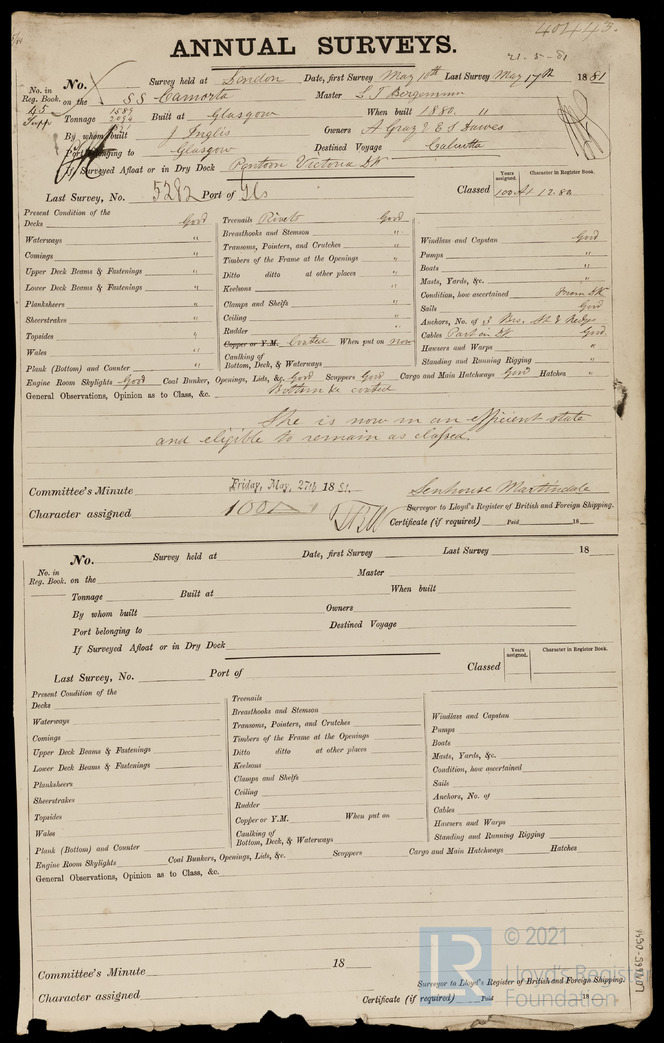 40443.
ANNUAL SURVEYS.
21-5-81
No. Survey held at London Date, first Survey May 10th Last Survey May 17th 1881
No. in Reg. Book. on the SS Camorta Master
45 Supp Tonnage 1589 2034 Built at Glasgow When built 1880. "
By whom built J Inglis Owners A Gray & E S Dawes
Port belonging to Glasgow Destined Voyage Calcutta
If Surveyed Afloat or in Dry Dock Pontoon Victoria Dk
Last Survey, No. 5282 Port of Gls Classed Years assigned. Character in Register Book. 100 A1 12.80
Present Condition of the
Decks Good
Waterways "
Comings "
Upper Deck Beams & Fastenings "
Lower Deck Beams & Fastenings "
Planksheers "
Sheerstrakes "
Topsides "
Wales "
Plank (Bottom) and Counter "
Treenails Rivets Good
Breasthooks and Stemson "
Transoms, Pointers, and Crutches "
Timbers of the Frame at the Openings "
Ditto ditto at other places "
Keelsons "
Clamps and Shelfs "
Ceiling "
Rudder "
Copper or Y.M. Coated When put on now
Caulking of
Bottom, Deck, & Waterways "
Windlass and Capstan Good
Pumps "
Boats "
Masts, Yards, &c. "
Condition, how ascertained From Dk
Sails Good
Anchors, No. of 3 Brs. St & Kedge
Cables Part in Dk Good.
Hawsers and Warps "
Standing and Running Rigging "
Engine Room Skylights Good Coal Bunker, Openings, Lids, &c. Good Scuppers Good Cargo and Main Hatchways Good Hatches "
General Observations, Opinion as to Class, &c. Bottom re coated
She is now in an efficient state
and eligible to remain as classed.
Committee's Minute Friday, May, 27th 1881. Senhouse Martindale
Surveyor to Lloyd's Register of British and Foreign Shipping.
Character assigned 100A1
Certificate (if required) Paid 18
No. Survey held at Date, first Survey Last Survey 18
No. in Reg. Book. on the Master
Tonnage Built at When built
By whom built Owners
Port belonging to Destined Voyage
If Surveyed Afloat or in Dry Dock
Last Survey, No. Port of Classed Years assigned. Character in Register Book.
Present Condition of the
Decks
Waterways
Comings
Upper Deck Beams & Fastenings
Lower Deck Beams & Fastenings
Planksheers
Sheerstrakes
Topsides
Wales
Plank (Bottom) and Counter
Treenails
Breasthooks and Stemson
Transoms, Pointers, and Crutches
Timbers of the Frame at the Openings
Ditto ditto at other places
Keelsons
Clamps and Shelfs
Ceiling
Rudder
Copper or Y.M. When put on
Caulking of
Bottom, Deck, & Waterways
Windlass and Capstan
Pumps
Boats
Masts, Yards, &c.
Condition, how ascertained
Sails
Anchors, No. of
Cables
Hawsers and Warps
Standing and Running Rigging
Engine Room Skylights Coal Bunkers, Openings, Lids, &c. Scuppers Cargo and Main Hatchways Hatches
General Observations, Opinion as to Class, &c.
Committee's Minute 18
Surveyor to Lloyd's Register of British and Foreign Shipping.
Character assigned
Certificate (if required) Paid 18
LR
© 2021
Lloyd's Register
Foundation